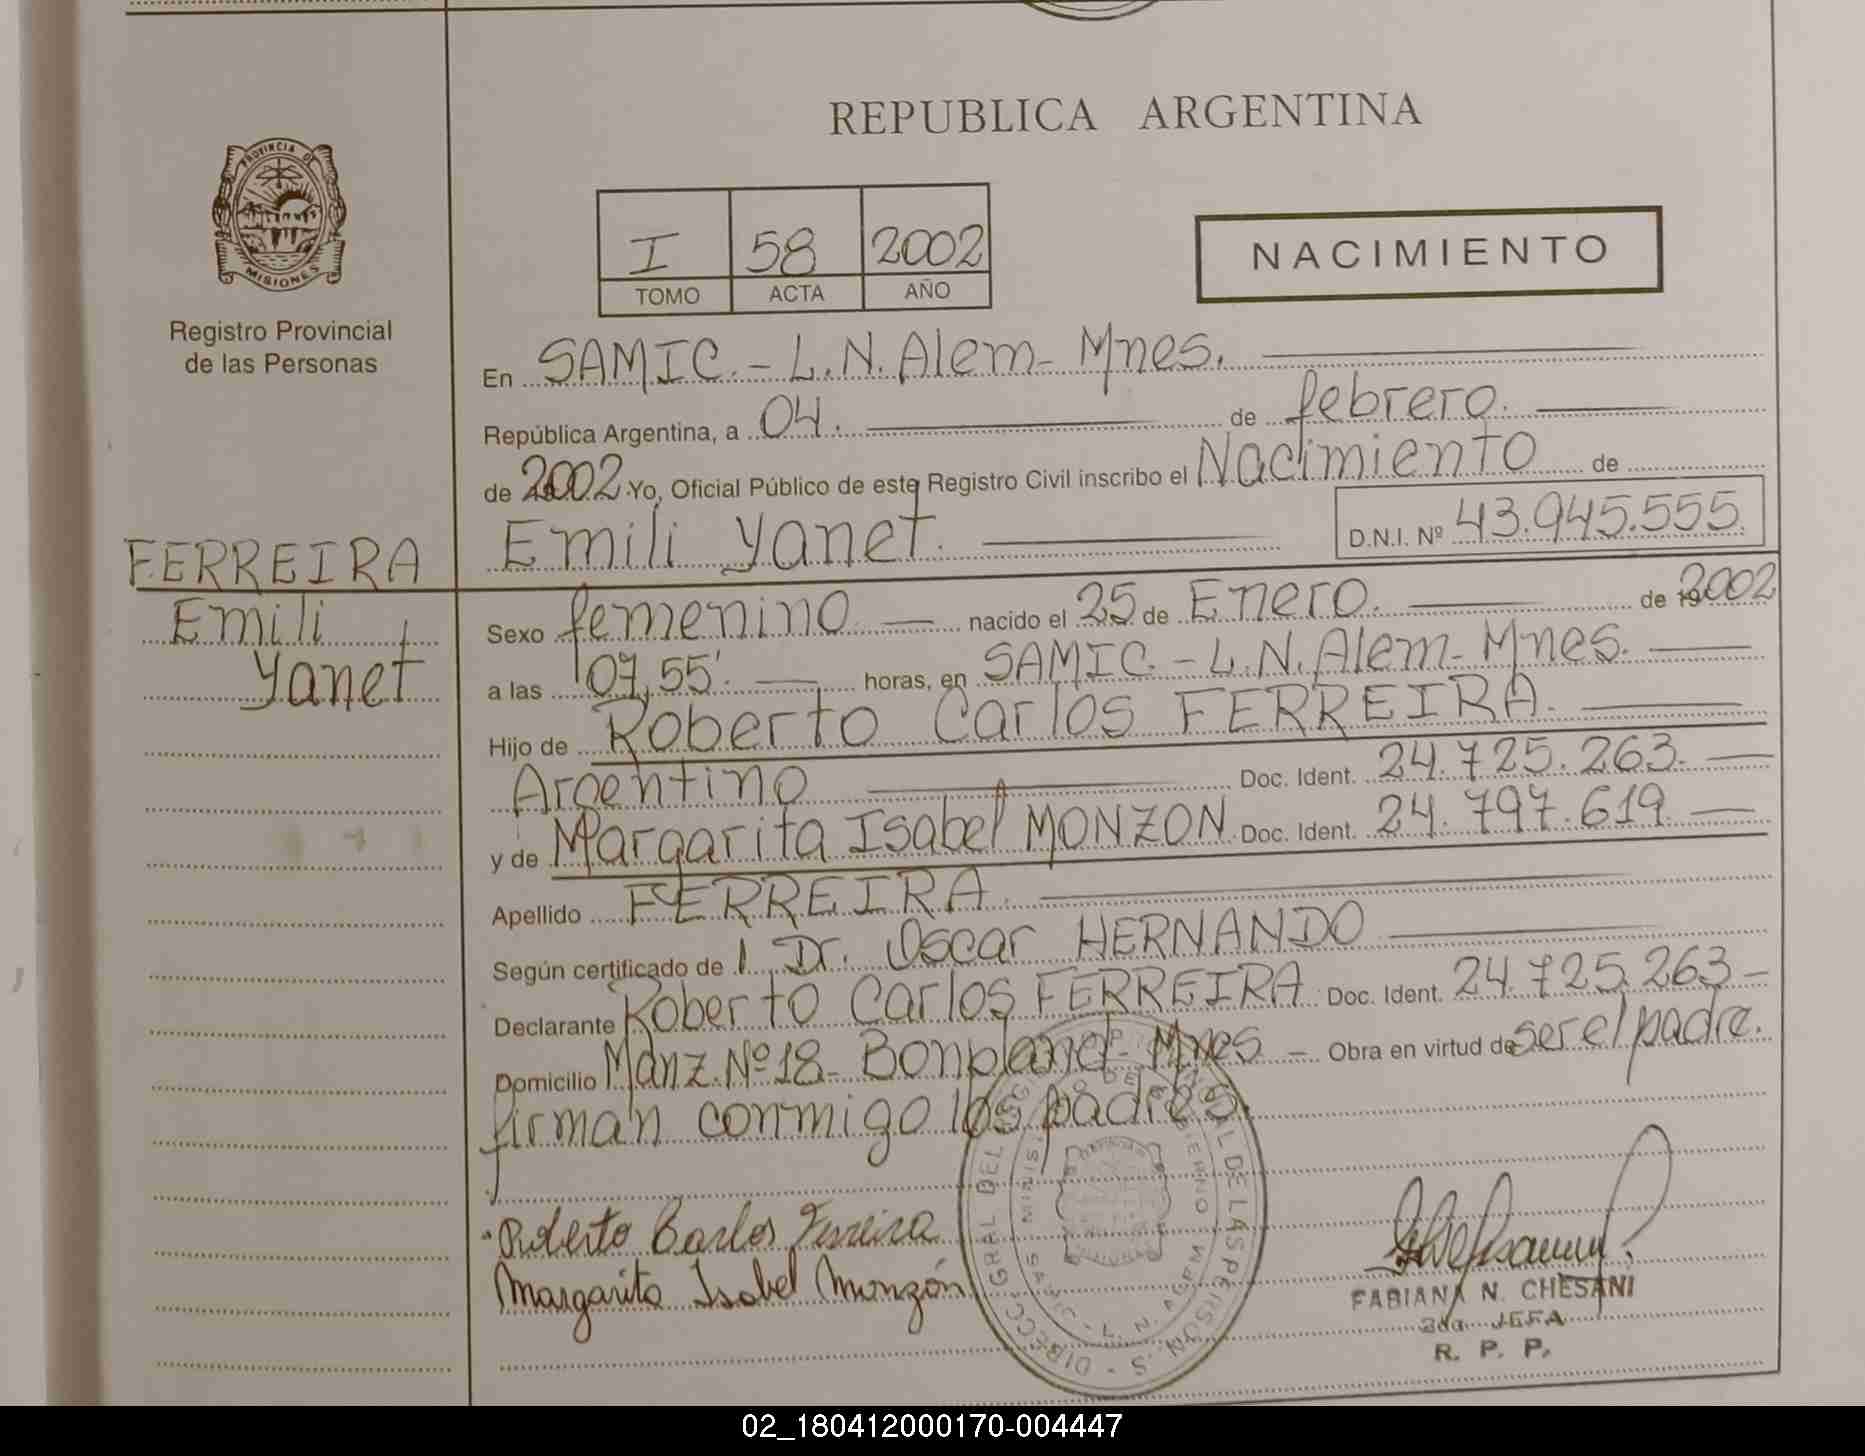 REPUBLICA ARGENTINA
PROVINCIA DE
MISIONES
Registro Provincial
de las Personas
I 58 2002
TOMO ACTA AÑO
NACIMIENTO
En SAMIC.- L.N. Alem- Mnes.
República Argentina, a 04. de febrero.
de 2002 Yo, Oficial Público de este Registro Civil inscribo el Nacimiento de
Emili Yanet. D.N.I. Nº 43.945.555.
FERREIRA
Emili
Yanet
Sexo femenino nacido el 25 de Enero. de 19 2002
a las 07,55'. horas, en SAMIC.- L.N. Alem- Mnes.
Hijo de Roberto Carlos FERREIRA.
Argentino Doc. Ident. 24.725.263.
y de Margarita Isabel MONZON. Doc. Ident. 24.797.619.
Apellido FERREIRA.
Según certificado de Dr. Oscar HERNANDO
Declarante Roberto Carlos FERREIRA Doc. Ident. 24.725.263-
Domicilio Manz. Nº 18- Bonpland- Mnes - Obra en virtud de ser el padre.
firman conmigo los padres.
Roberto Carlos Ferreira
Margarita Isabel Monzón
FABIANA N. CHESANI
2da. JEFA
R. P. P.
02_180412000170-004447